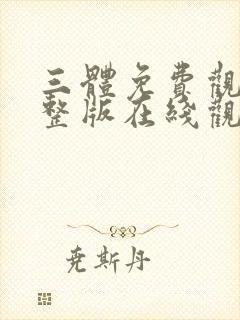 三體免費觀
整版在綫觀
尭斯丹